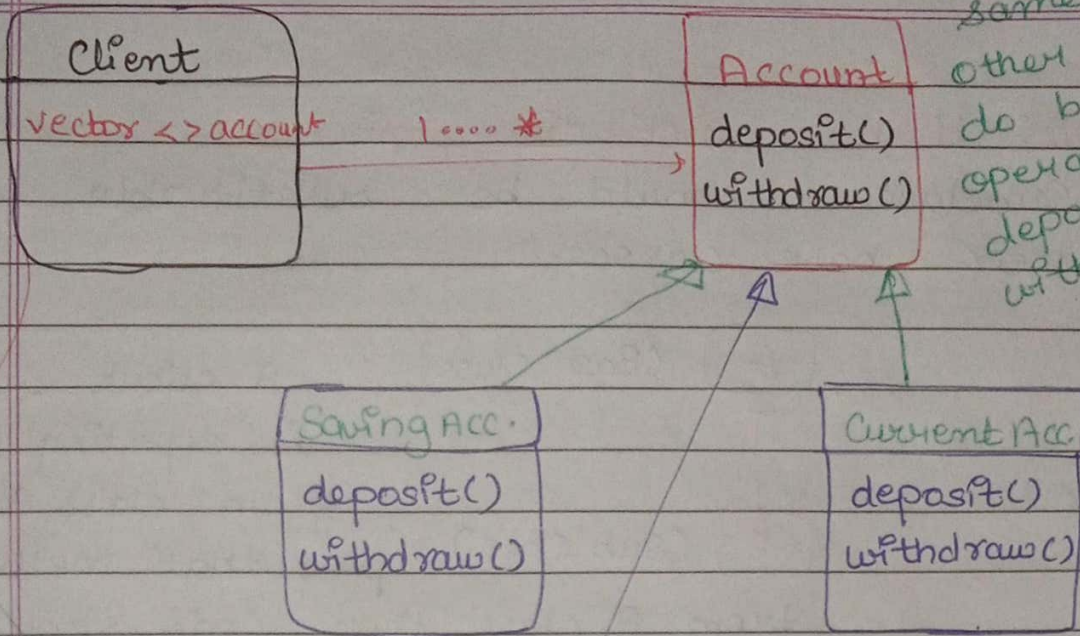 Client
vector <> account
1....*
Account
deposit()
withdraw()
other
do
Saving Acc.
deposit()
withdraw()
Current Acc
deposit()
withdraw()